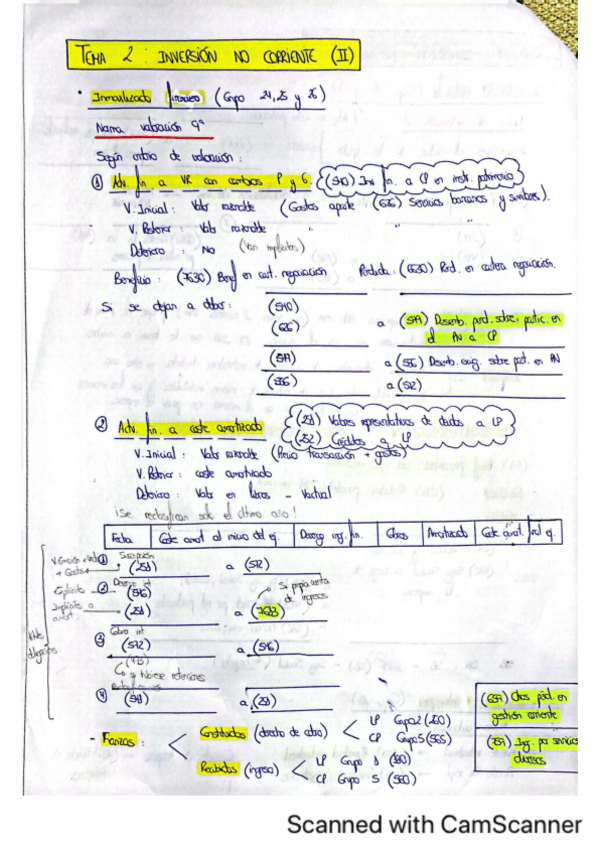 TEMA 2 : INVERSIÓN NO CORRIENTE (II)
· Inmovilizado financiero (Grupo 24, 25 y 26)
Norma valoración 9ª
Según criterio de valoración :
① Activ. fin. a VR con cambios P y G. (540) Inv. fin. a CP en instr. patrimonio
V. Inicial : Valor razonable (Gastos aparte (626) Servicios bancarios y similares).
V. Posterior : Valor razonable " "
Deterioro : No (Van implícitos)
Beneficio : (7630) Benf en cart. negociación Pérdida : (6630) Pérd. en cartera negociación.
Si se dejan a deber : (540)
(626) a (549) Desemb. pend. sobre partic. en el PN a CP
(549) a (556) Desemb. exig. sobre part. en PN
(556) a (572)
② Activ. fin. a coste amortizado (251) Valores representativos de deudas a LP
(252) Créditos a LP
V. Inicial : Valor razonable (Precio transacción + gastos)
V. Posterior : coste amortizado
Deterioro : Valor en libros - Vactual
¡Se reclasifican solo el último año!
Fecha Coste amort al inicio del ej. Devengo ing. fin. Cobros Amortizado Coste amort. final ej.
① Suscripción
+ Gastos (251) a (572)
② Devengo int
Explícito (546) Si propia renta de ingresos
Implícito o amort. (251) a (7613)
③ Cobro int
(572) a (546)
(473)
↳ si hubiese retenciones
④ (541) a (251)
- Fianzas : Constituidas (derecho de cobro) < LP Grupo 2 (260)
CP Grupo 5 (565)
Recibidas (ingreso) < LP Grupo 1 (180)
CP Grupo 5 (560)
(659) Otras pérd. en gestión corriente
(759) Ing. por servicios diversos
Scanned with CamScanner